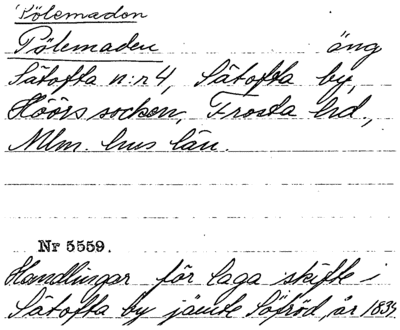 Pölemadon
Pölemaden äng
Sätofta n:r 4, Sätofta by,
Höörs socken, Frosta hd.,
Mlm. hus län.
Nr 5559.
Handlingar för laga skifte i
Sätofta by jämte Söfröd, år